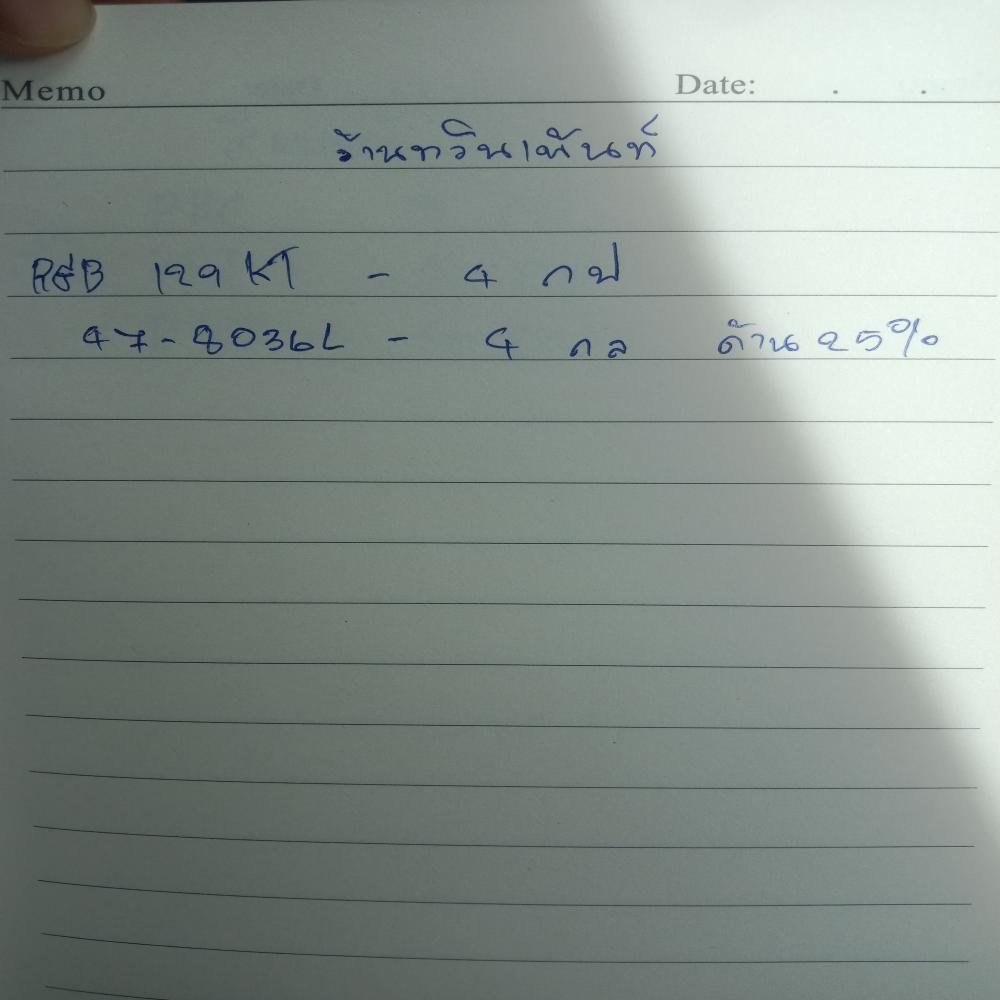 Memo Date: . .
ร้านทวินเพ้นท์
R&B 129 KT - 4 กป
47-8036L - 4 กล ด้าน 25%